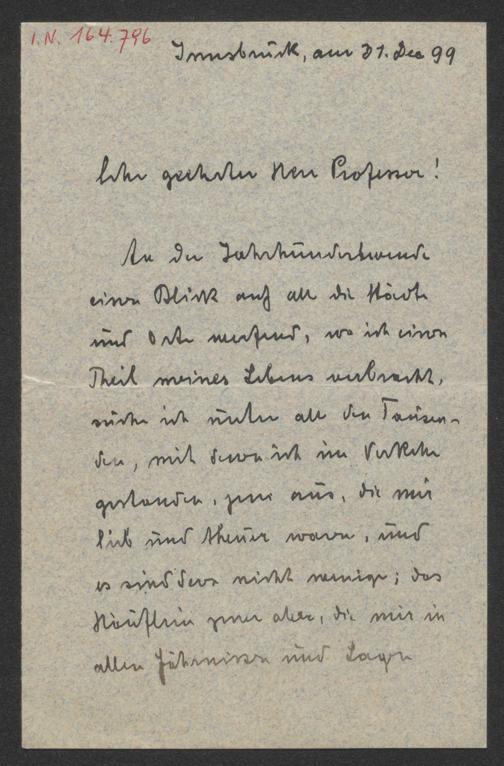 I.N. 164.796
Innsbruck, am 31. Dec 99
Sehr geehrter Herr Professor!
An der Jahrhundertwende
einen Blick auf all die Städte
und Orte werfend, wo ich einen
Theil meines Lebens verbracht,
suche ich unter all den Tausen-
den, mit denen ich im Verkehr
gestanden, jene aus, die mir
lieb und theuer waren, und
es sind derer nicht wenige; das
Häuflein jener aber, die mir in
allen Fährnissen und Lagen